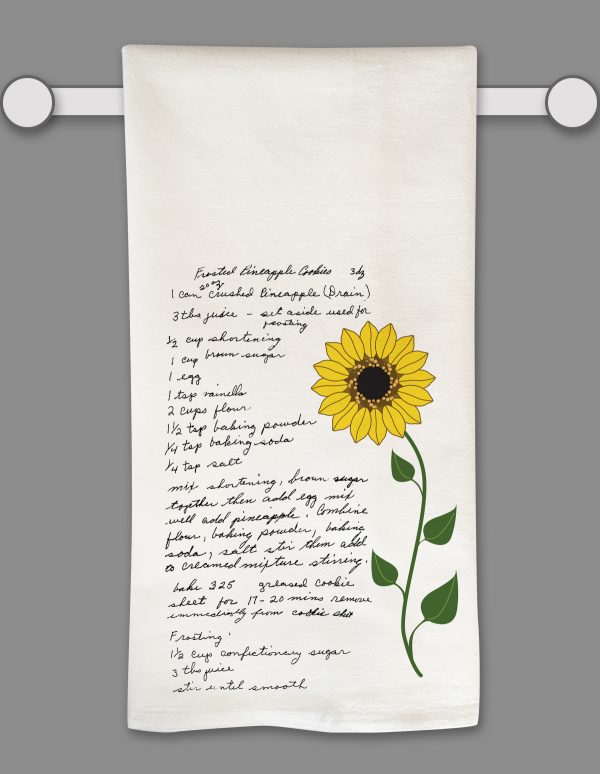 Frosted Pineapple Cookies 3dz
20 oz
1 can Crushed Pineapple (Drain)
3 tbs juice - set aside used for
frosting
1/2 cup shortening
1 cup brown sugar
1 egg
1 tsp vainella
2 cups flour
1 1/2 tsp baking powder
1/4 tsp baking soda
1/4 tsp salt
mix shortening, brown sugar
together then add egg mix
well add pineapple. Combine
flour, baking powder, baking
soda, salt stir them add
to creamed mixture stirring.
bake 325 greased cookie
sheet for 17-20 mins remove
immediatly from cookie sheet
Frosting:
1 1/2 cup confectionery sugar
3 tbs juice
stir until smooth